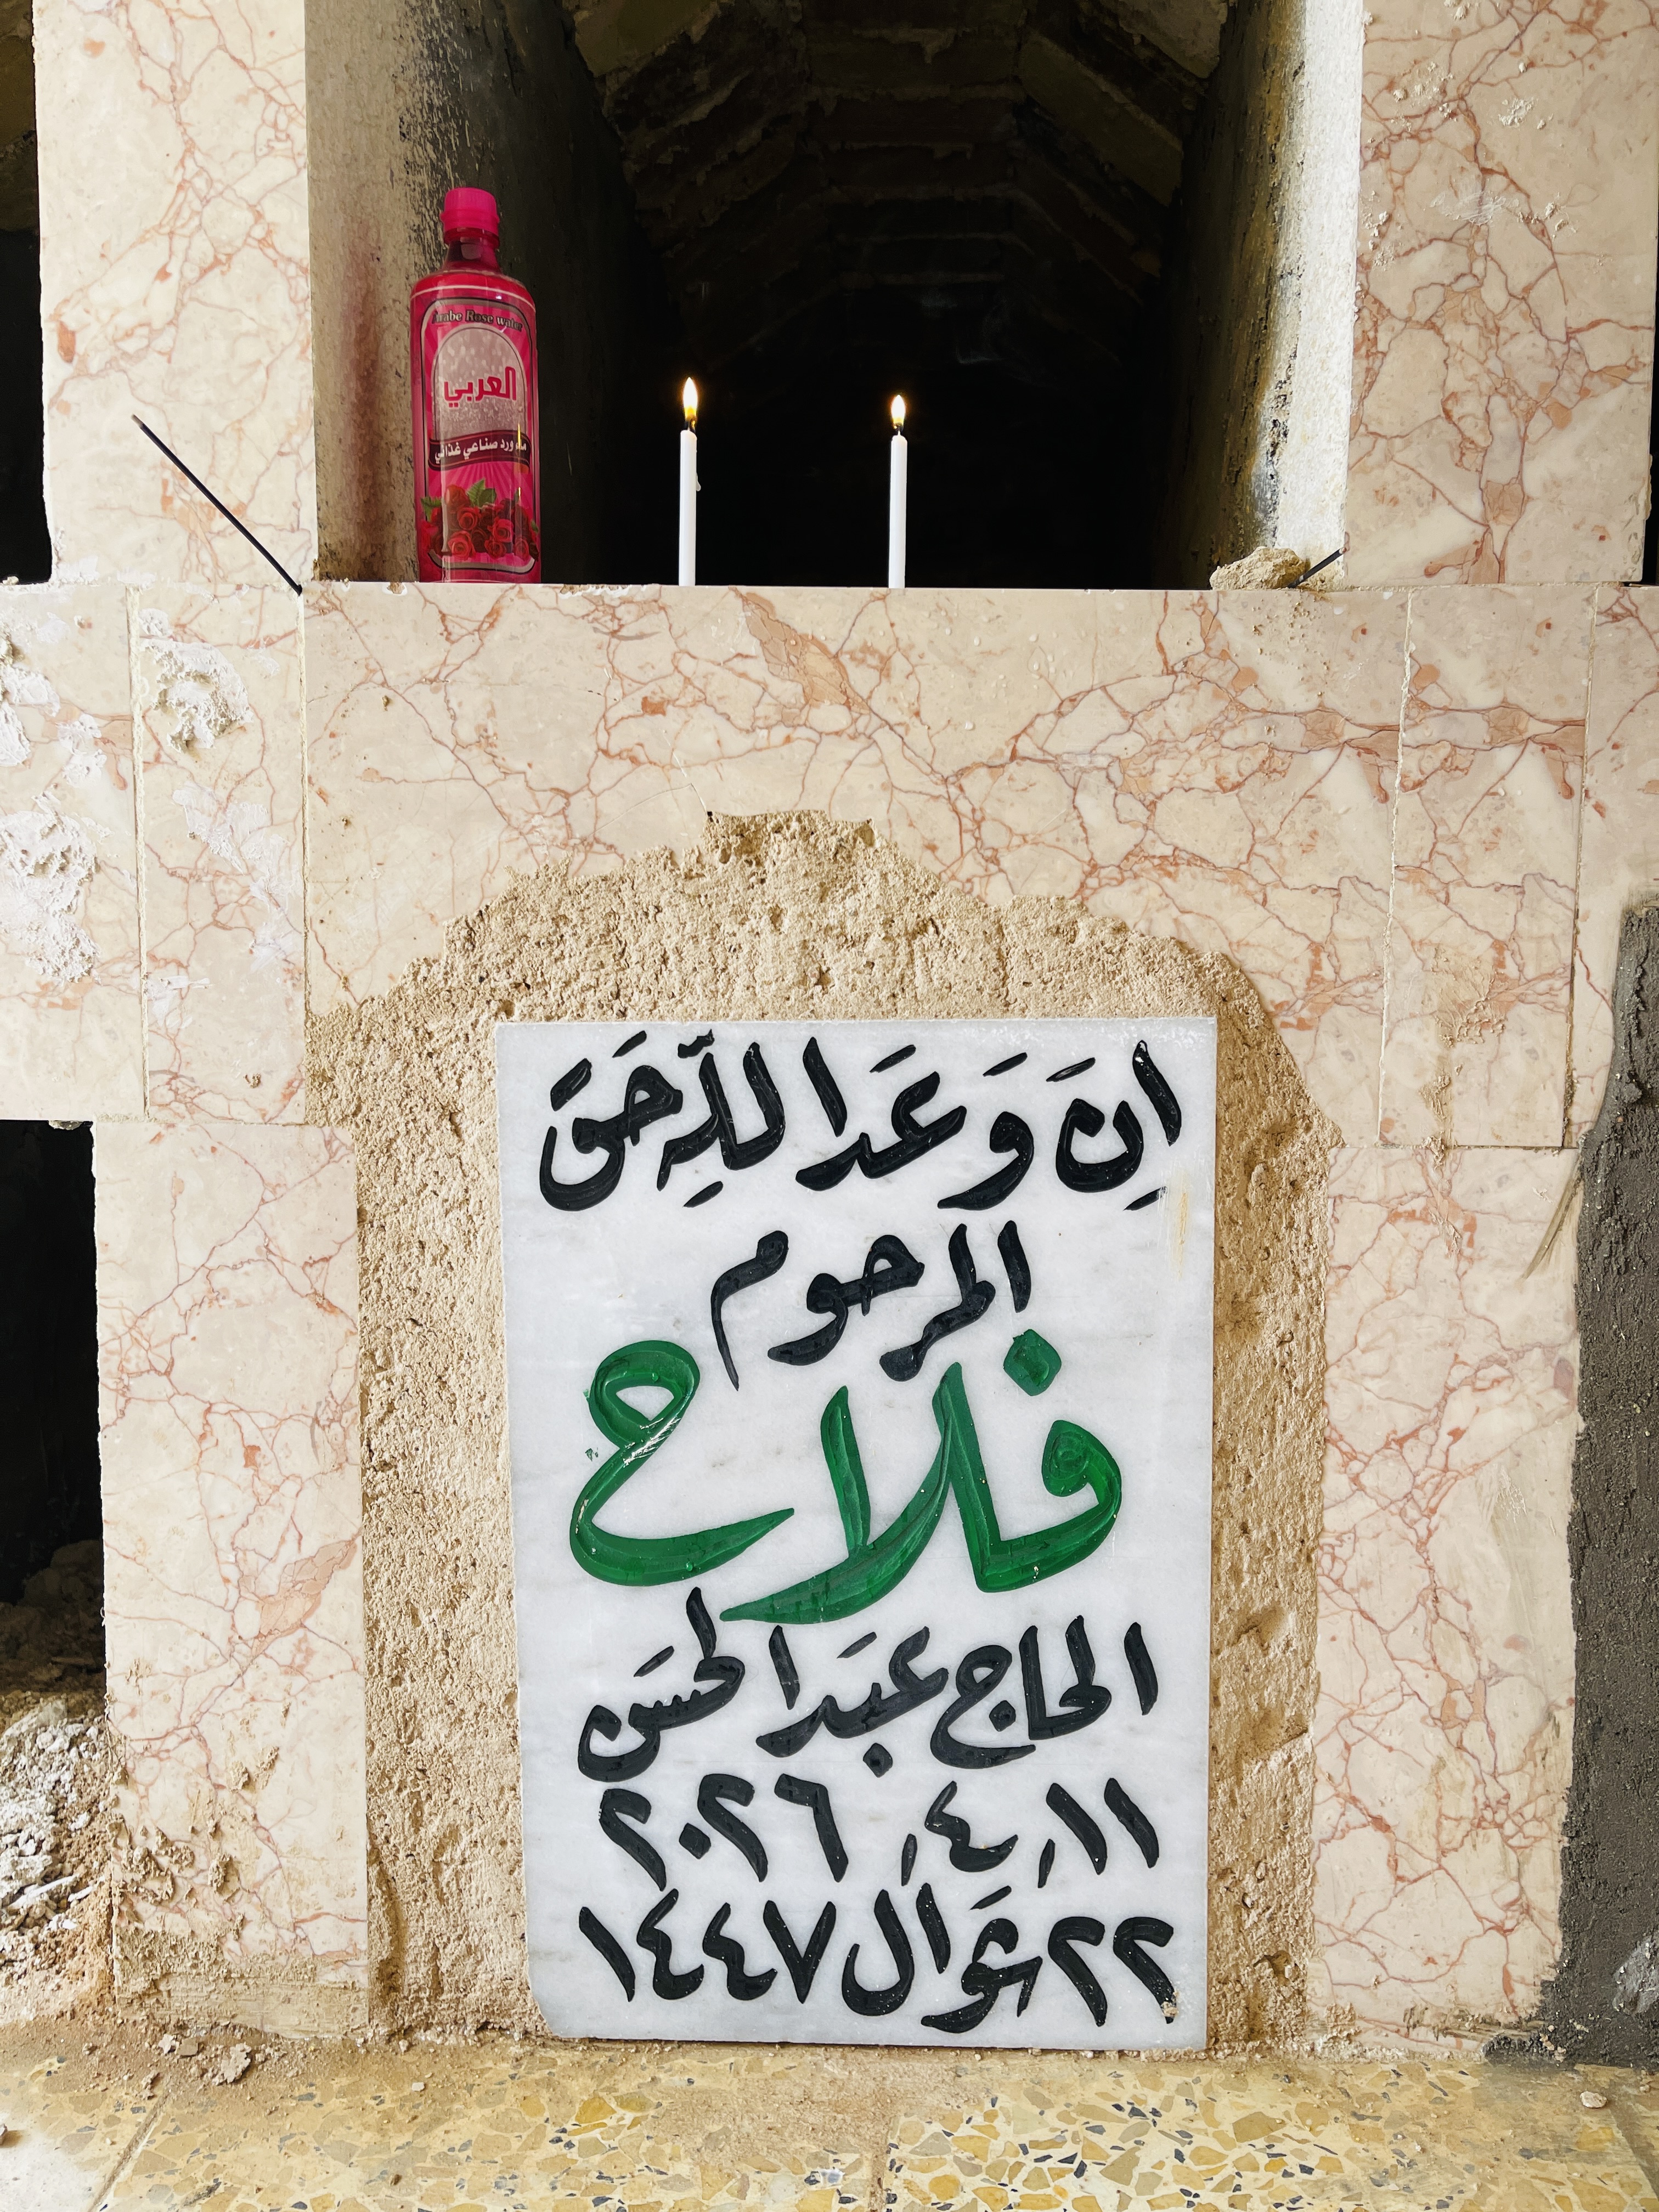 Arabe Rose water
العربي
ماء ورد صناعي غذائي
اِنَ وَعَدا للّهِ حَقَ
المرحوم
فلاح
الحاج عبَدالحسَن
١١ / ٤ / ٢٠٢٦
٢٢ شوَال ١٤٤٧